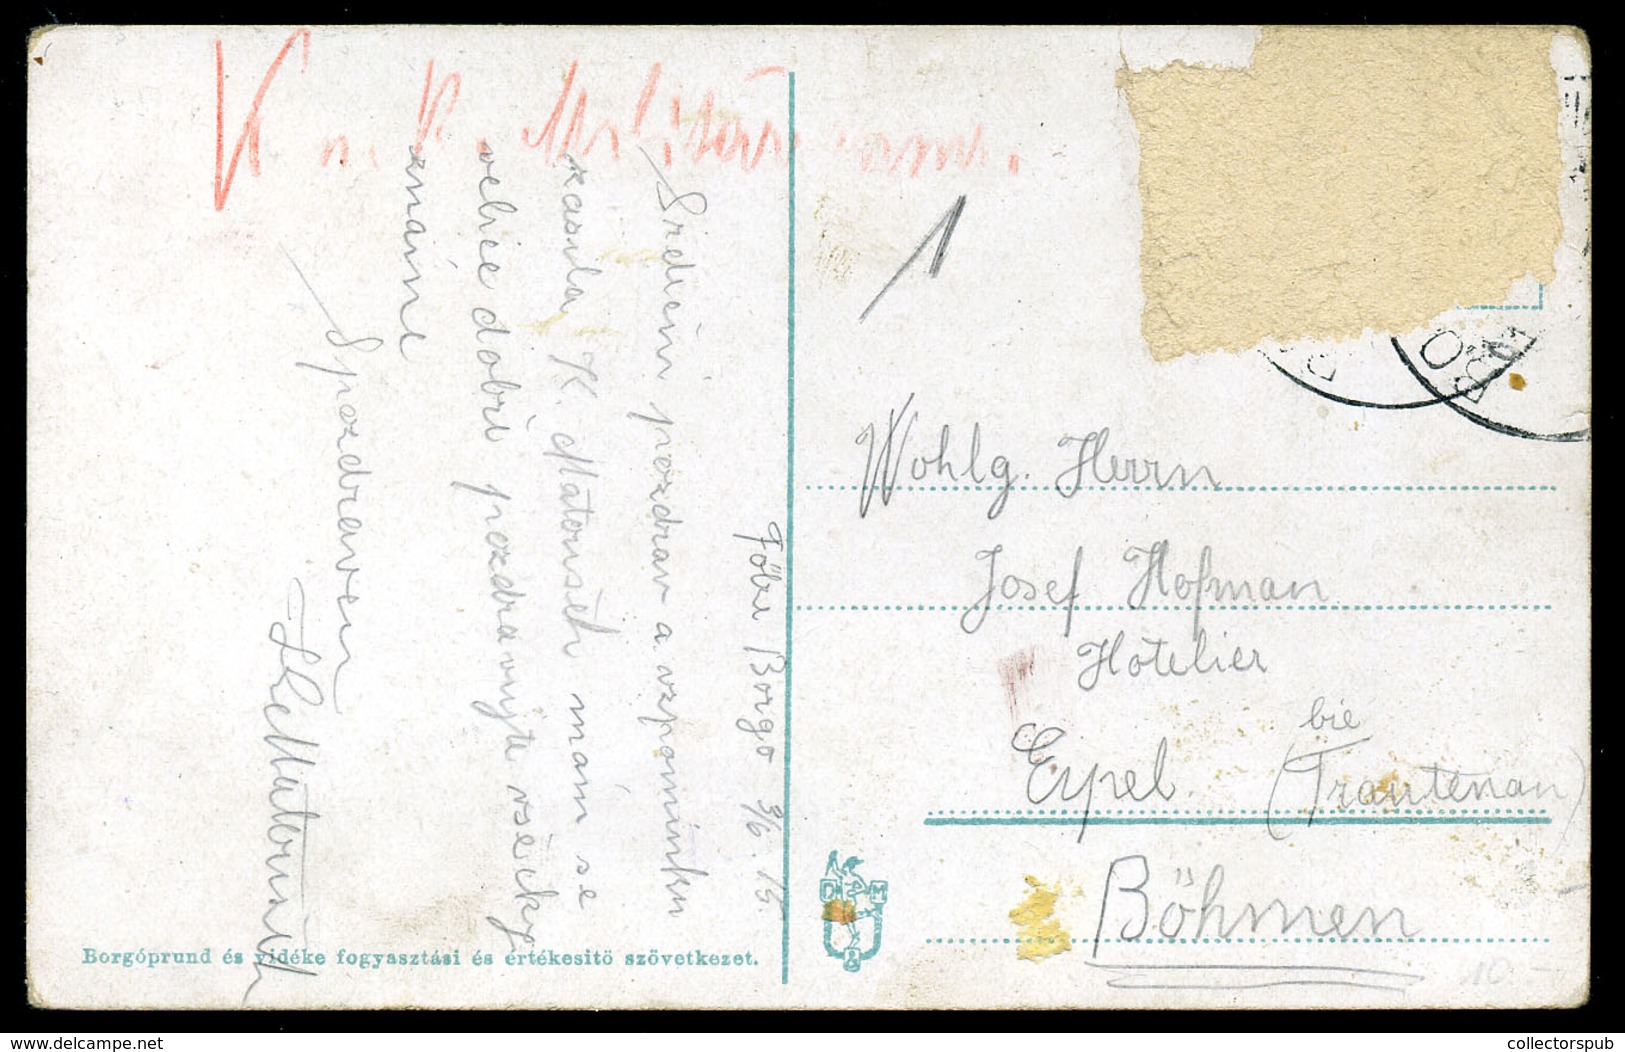 K. u. K. Militärzens.
1
Föbu Borgo 3/6. 15.
Srdečný pozdrav a vzpomínku
zasílá K. Matoušek mám se
velice dobře pozdravujte všecky
známé
S pozdravem
K. Matoušek
Wohlg. Herrn
Josef Hofman
Hotelier
Eypel (bie Trautenau)
Böhmen
10.-
D M
&
Borgóprund és vidéke fogyasztási és értékesitö szövetkezet.
Delcampe.net
collectorspub